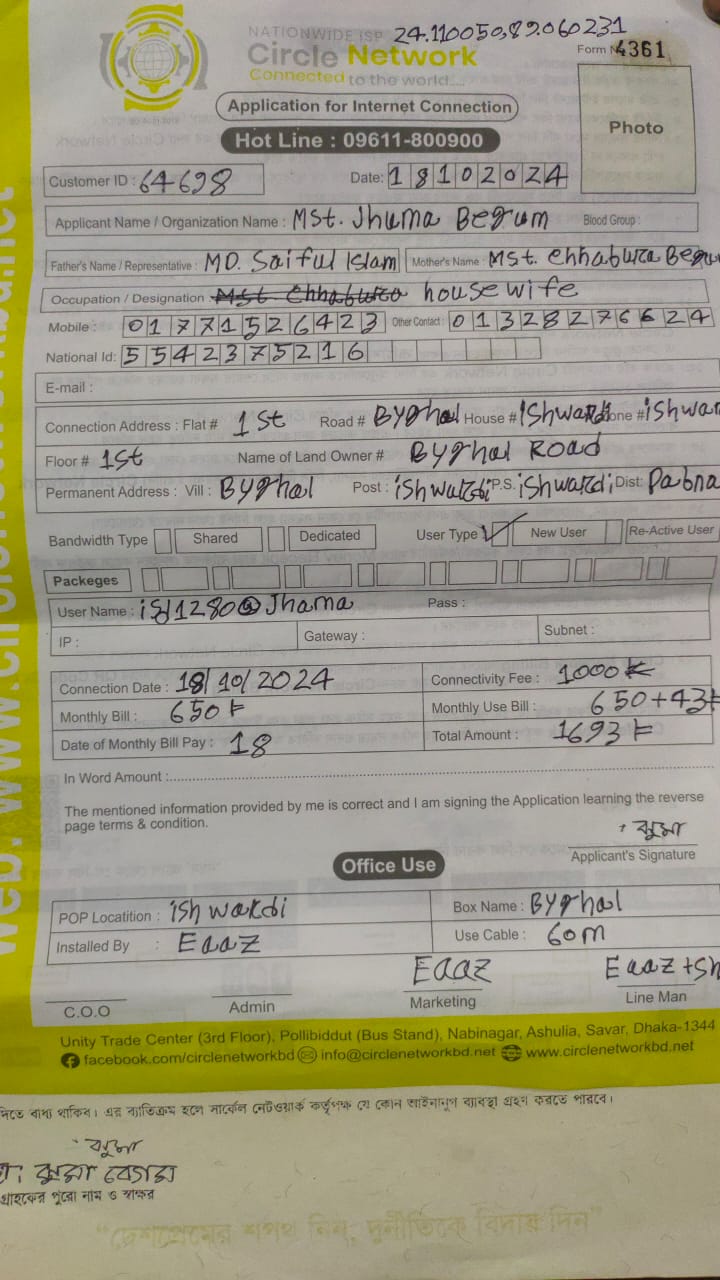 NATIONWIDE ISP 24.110050,89.060231
Circle Network
Connected to the world....
Form N 4361
Application for Internet Connection
Photo
Hot Line : 09611-800900
Customer ID : 64698 Date: 18102024
Applicant Name / Organization Name : MSt. Jhuma Begum Blood Group :
Father's Name / Representative : MD. Saiful Islam Mother's Name : Mst. Chhabura Begu
Occupation / Designation housewife
Mobile : 01771526423 Other Contact : 01328276624
National Id: 5542375216
E-mail :
Connection Address : Flat # 1st Road # Byghal House # iShwardi Zone # iShwar
Floor # 1st Name of Land Owner # Byghal Road
Permanent Address : Vill : Byghal Post : iShwardi P.S. iShwardi Dist: Pabna
Bandwidth Type Shared Dedicated User Type New User Re-Active User
Packeges
User Name : 1280@Jhama Pass :
IP : Gateway : Subnet :
Connection Date : 18/10/2024 Connectivity Fee : 1000
Monthly Bill : 650 Monthly Use Bill : 650+43
Date of Monthly Bill Pay : 18 Total Amount : 1693
In Word Amount :
The mentioned information provided by me is correct and I am signing the Application learning the reverse
page terms & condition.
ঝুমা
Applicant's Signature
Office Use
POP Locatition : iShwardi Box Name : Byghal
Installed By : Eaaz Use Cable : 60m
Eaaz Eaaz + Sh
C.O.O Admin Marketing Line Man
Unity Trade Center (3rd Floor), Pollibiddut (Bus Stand), Nabinagar, Ashulia, Savar, Dhaka-1344
facebook.com/circlenetworkbd info@circlenetworkbd.net www.circlenetworkbd.net
দিতে বাধ্য থাকিব। এর ব্যতিক্রম হলে সার্কেল নেটওয়ার্ক কর্তৃপক্ষ যে কোন আইনানুগ ব্যবস্থা গ্রহণ করতে পারবে।
ঝুমা
ঝুমা বেগম
গ্রাহকের পুরো নাম ও স্বাক্ষর
“দেশপ্রেমের শপথ নিন, দুর্নীতিকে বিদায় দিন”